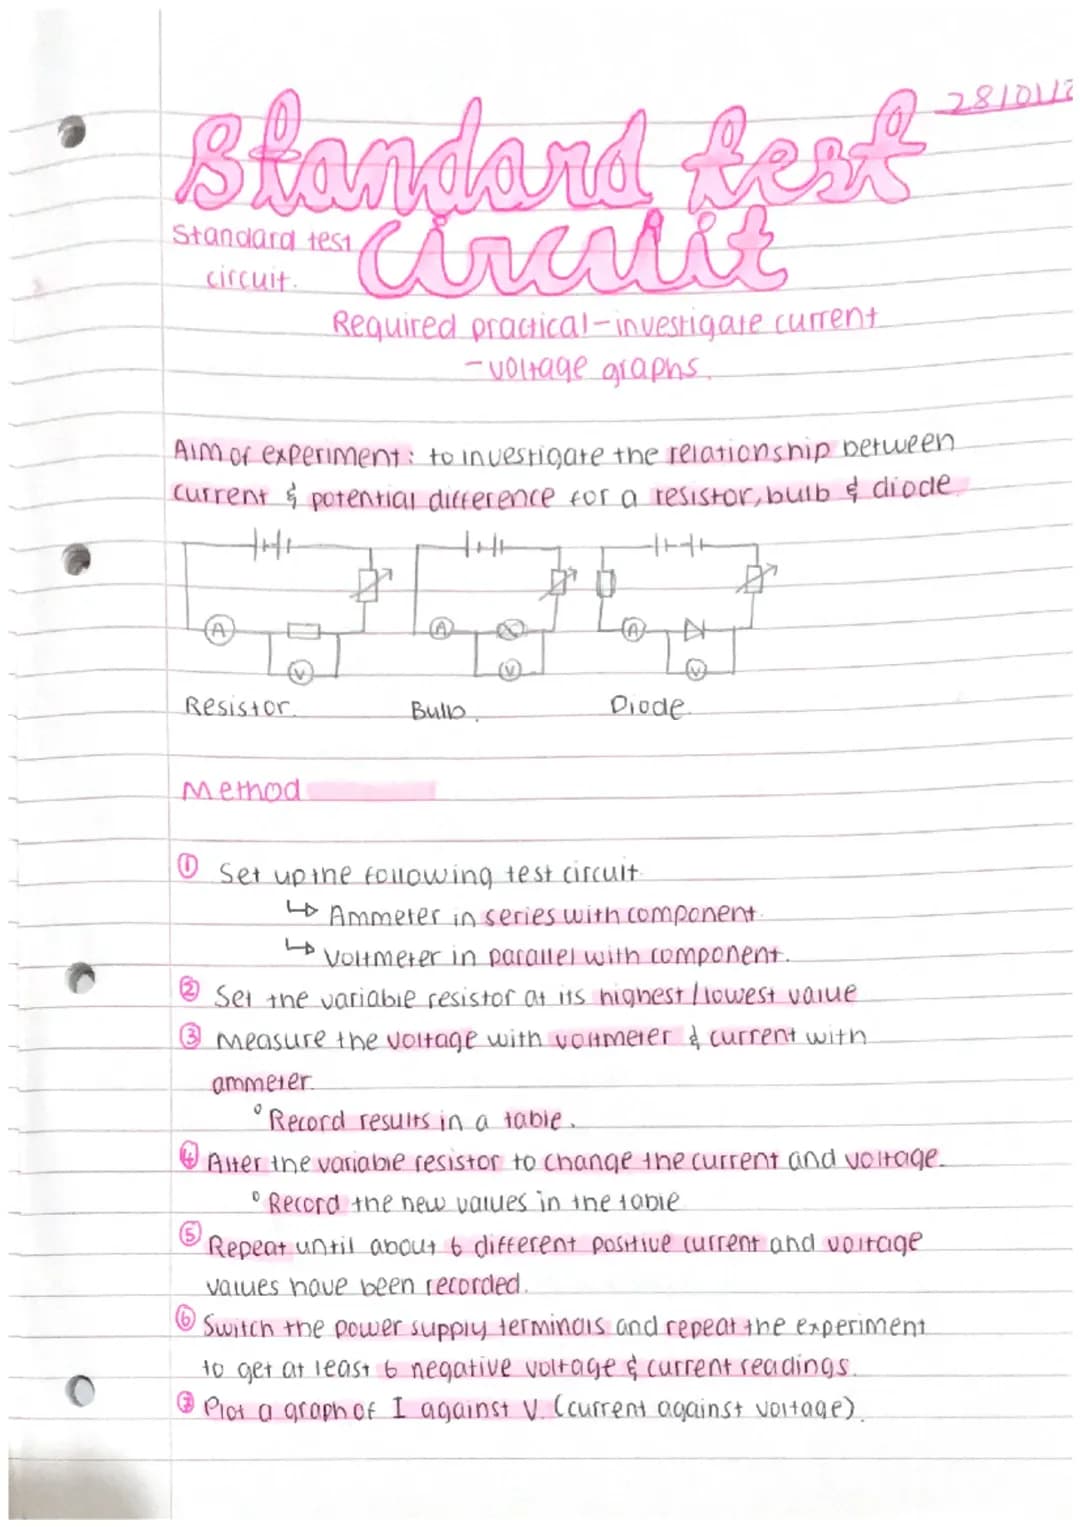 28/01/
Standard test
Circuit
Standard test
circuit.
Required practical - investigate current
- voltage graphs.
Aim of experiment: to investigate the relationship between
current & potential difference for a resistor, bulb & diode.
A
V
A
V
A
V
Resistor.
Bulb.
Diode.
Method
① Set up the following test circuit.
↳ Ammeter in series with component.
↳ Voltmeter in parallel with component.
② Set the variable resistor at its highest / lowest value
③ Measure the voltage with voltmeter & current with
ammeter.
° Record results in a table.
④ Alter the variable resistor to change the current and voltage.
° Record the new values in the table
⑤ Repeat until about 6 different positive current and voltage
values have been recorded.
⑥ Switch the power supply terminals and repeat the experiment
to get at least 6 negative voltage & current readings.
⑦ Plot a graph of I against V. (current against voltage).